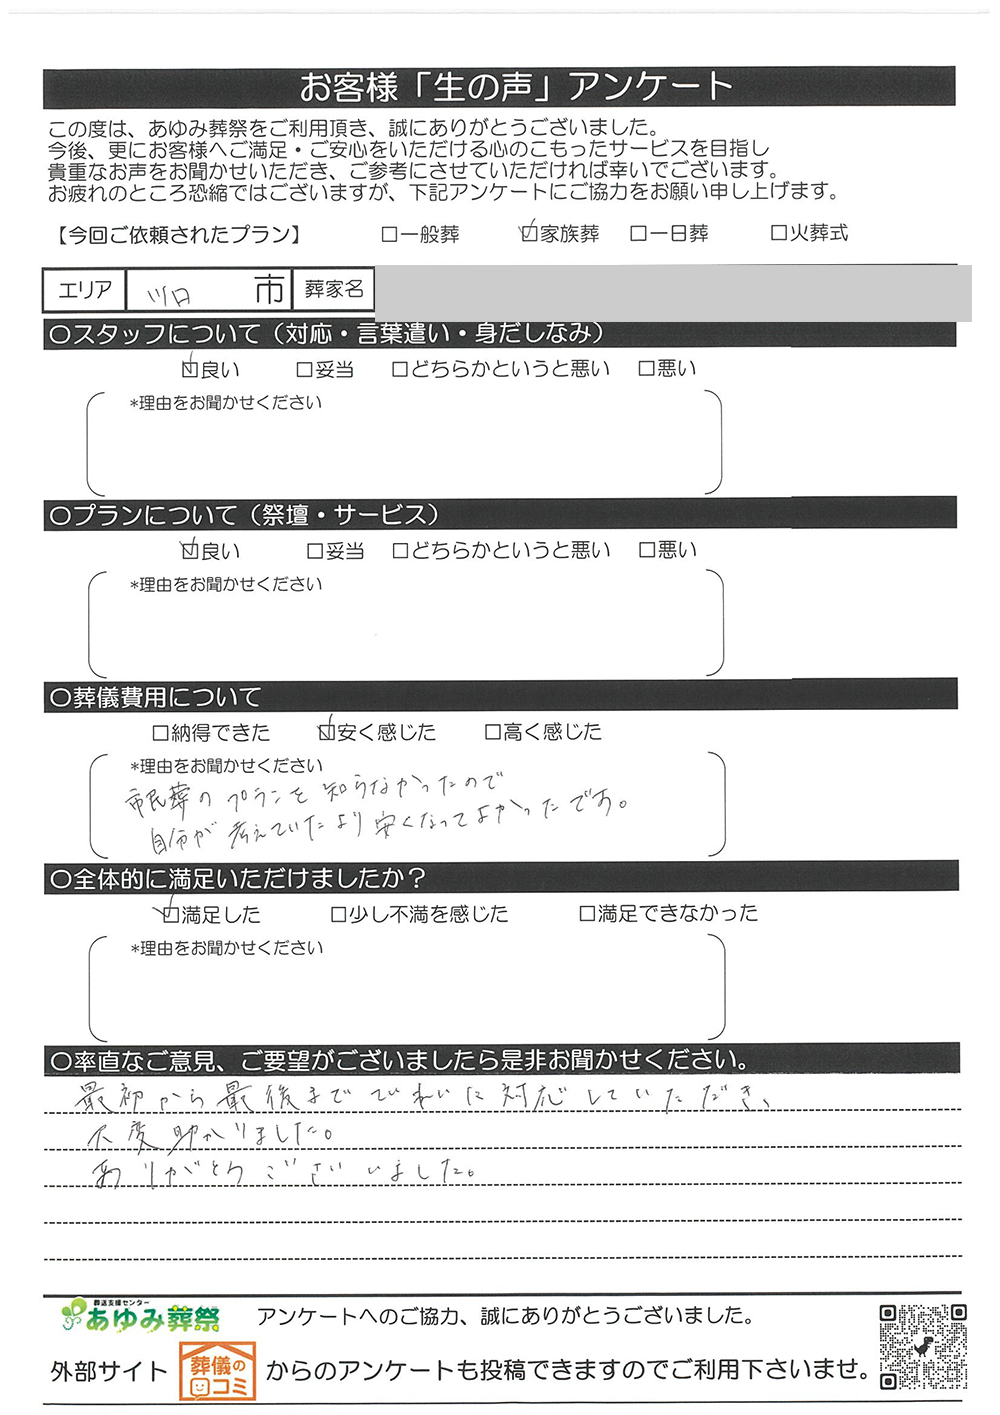 お客様「生の声」アンケート
この度は、あゆみ葬祭をご利用頂き、誠にありがとうございました。
今後、更にお客様へご満足・ご安心をいただける心のこもったサービスを目指し
貴重なお声をお聞かせいただき、ご参考にさせていただければ幸いでございます。
お疲れのところ恐縮ではございますが、下記アンケートにご協力をお願い申し上げます。
【今回ご依頼されたプラン】 □一般葬 ☑家族葬 □一日葬 □火葬式
エリア 川口 市 葬家名
○スタッフについて（対応・言葉遣い・身だしなみ）
☑良い □妥当 □どちらかというと悪い □悪い
*理由をお聞かせください
○プランについて（祭壇・サービス）
☑良い □妥当 □どちらかというと悪い □悪い
*理由をお聞かせください
○葬儀費用について
□納得できた ☑安く感じた □高く感じた
*理由をお聞かせください
市民葬のプランを知らなかったので
自分が考えていたより安くなってよかったです。
○全体的に満足いただけましたか？
☑満足した □少し不満を感じた □満足できなかった
*理由をお聞かせください
○率直なご意見、ご要望がございましたら是非お聞かせください。
最初から最後までていねいに対応していただき、
大変助かりました。
ありがとうございました。
葬送支援センター
あゆみ葬祭 アンケートへのご協力、誠にありがとうございました。
外部サイト 葬儀の口コミ からのアンケートも投稿できますのでご利用下さいませ。